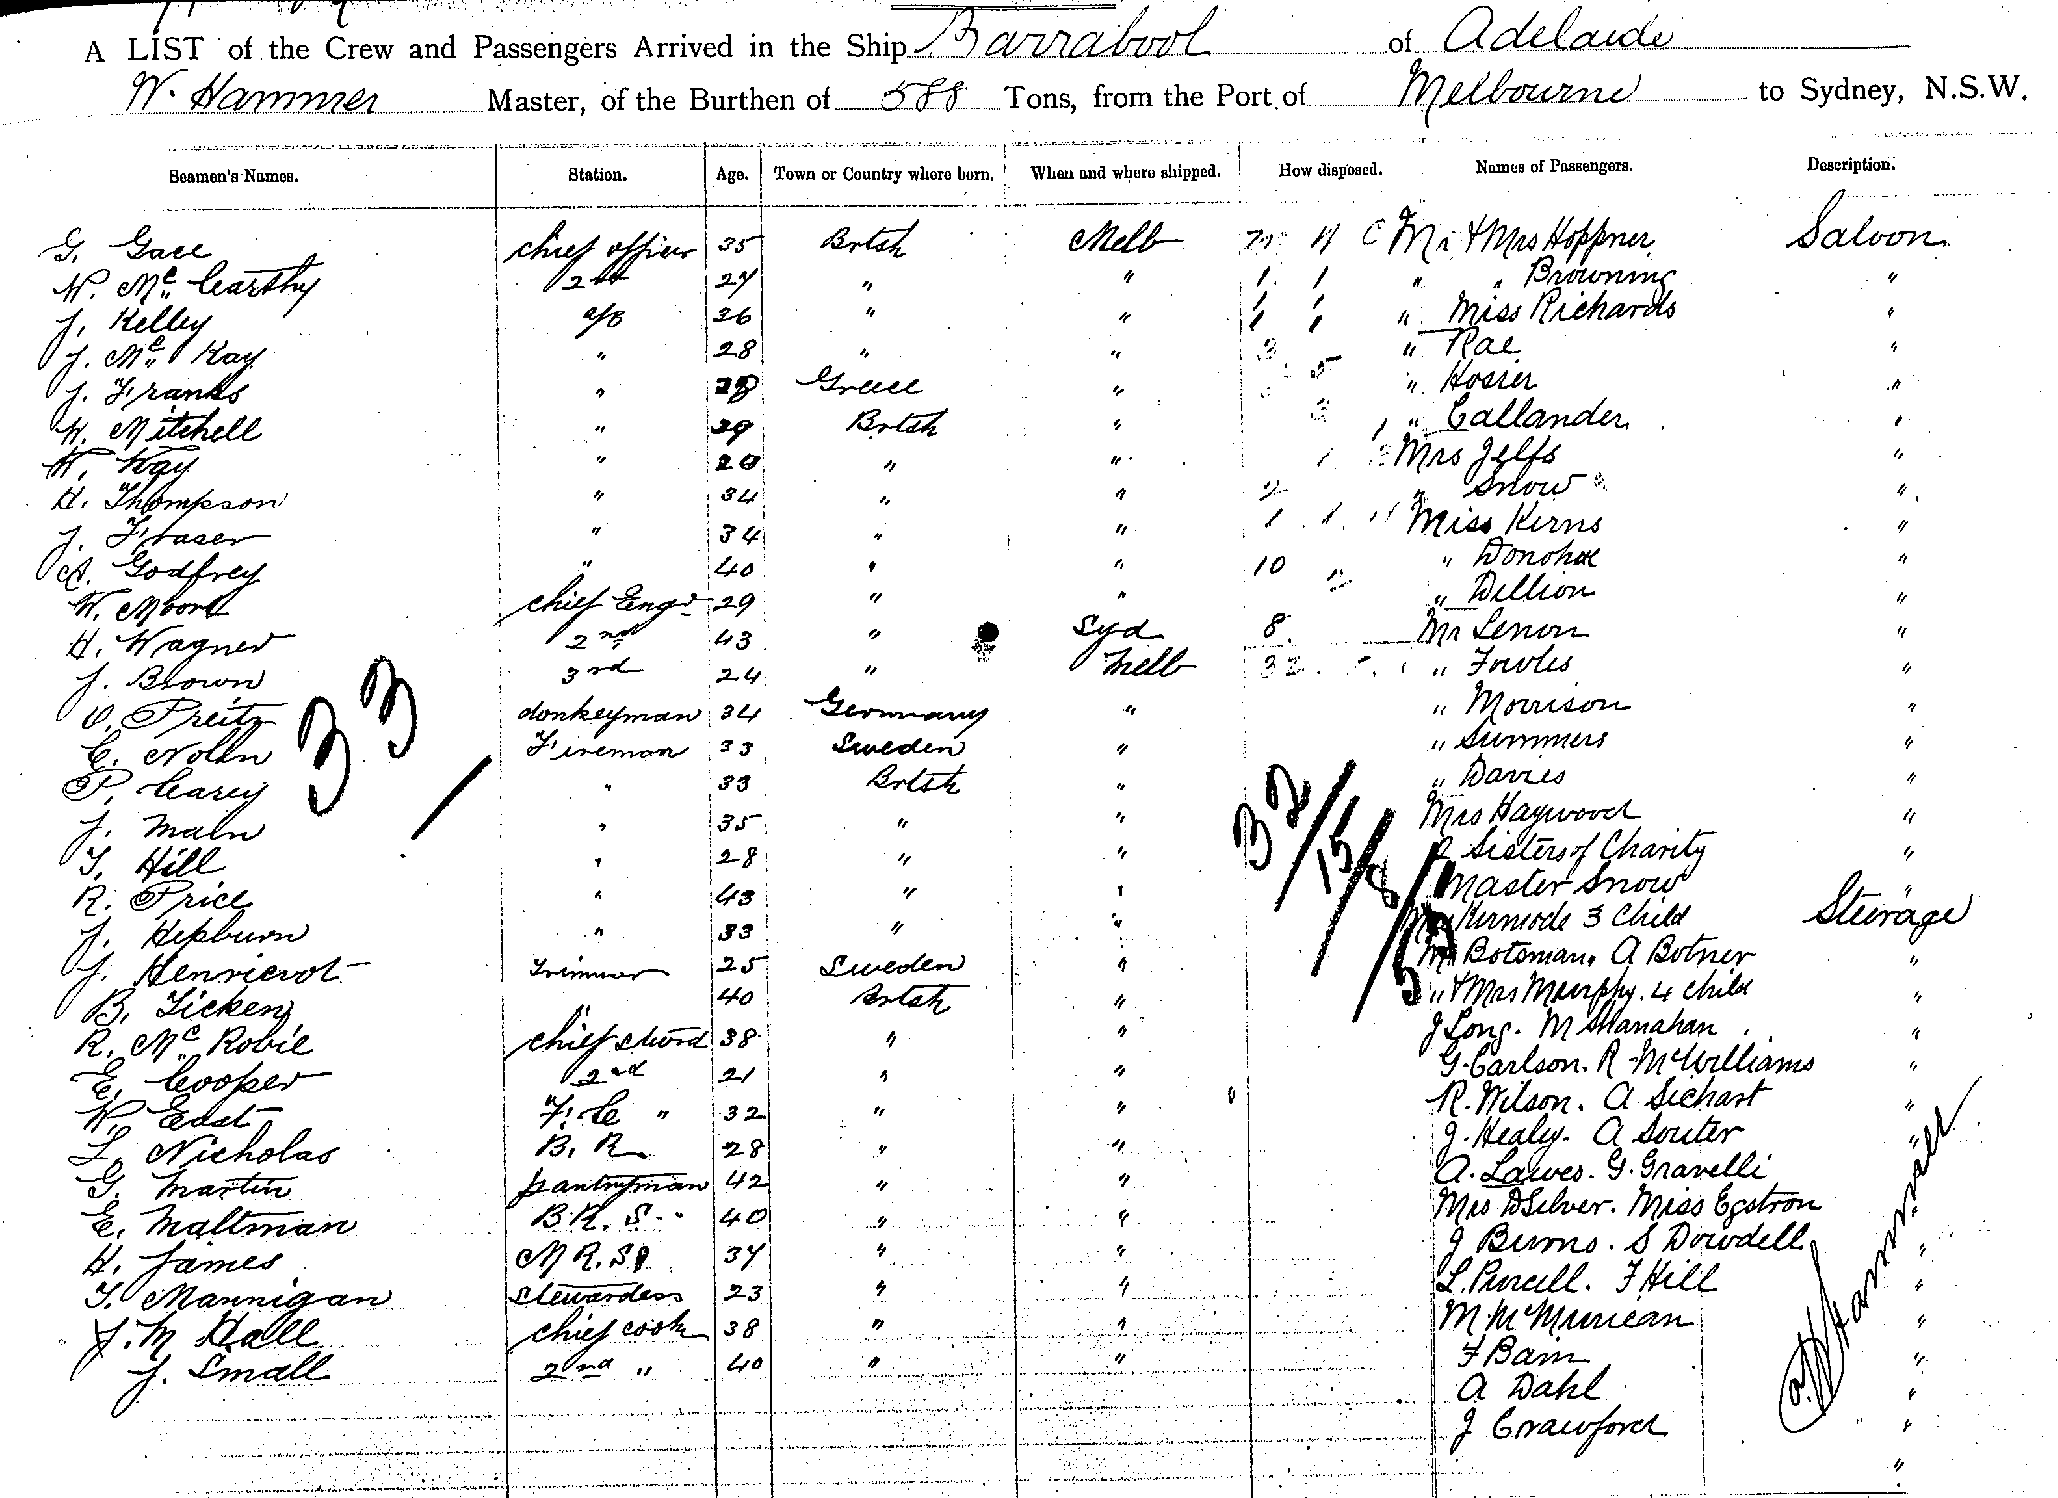 A LIST of the Crew and Passengers Arrived in the Ship Barrabool of Adelaide
W. Hammer Master, of the Burthen of 588 Tons, from the Port of Melbourne to Sydney, N.S.W.
Seamen's Names. Station. Age. Town or Country where born. When and where shipped. How disposed. Names of Passengers. Description.
G. chief officer 35 Brtsh Melb Mr & Mrs Hoppner Saloon
W. Mc Carthy 2nd 27 " " 1 1 " " Browning "
J. Kelley a/b 36 " " 1 1 " Miss Richards "
J. Mc Kay " 28 " " 3 " Rae "
J. Franks " 28 Greece " 5 " Hosier "
W. Mitchell " 29 Brtsh " 3 " Callander "
W. Kay " 20 " " 1 Mrs Jelfs "
H. Thompson " 34 " " 2 " Snow "
J. Fraser " 34 " " 1 1 Miss Kerns "
A. Godfrey " 40 " " 10 " Donohoe "
W. Moore chief Engr 29 " " " Dillion "
H. Wagner 2nd 43 " Syd 8 Mr Lenon "
J. Brown 3rd 24 " Melb 32 " Fowles "
O. Preitz donkeyman 34 Germany " " Morrison "
33
C. Nolin Fireman 33 Sweden " " Summers "
P. Carey " 33 Brtsh " " Davies "
J. Main " 35 " " Mrs Haywood "
32/15/8/
T. Hill " 28 " " Sisters of Charity "
R. Price " 43 " " Master Snow "
J. Hepburn " 33 " " Kermode 3 Child Steerage
J. Trimmer 25 Sweden " Botsman. A Botner "
B. Ticken " 40 Brtsh " " & Mrs Murphy. 4 child "
R. Mc Robie chief stwrd 38 " " J Long. M Shanahan "
E. Cooper 2nd 21 " " G. Carlson. R McWilliams "
W. East F. C " 32 " " R. Wilson. A Sichart "
L. Nicholas B. R 28 " " J. Healy. A Souter "
G. Martin pantryman 42 " " A. Lawes. G. Gravelli
E. Maltman B.R. S. " 40 " " Mrs DSilver. Miss Egstron
H. James M R. S 37 " " J Burns. S Dowdell "
T. Mannigan stewardess 23 " " L. Purcell. F Hill "
J. M Hall chief cook 38 " " M. "
J. Small 2nd " 40 " " F Bain "
A Dahl "
J Crawford "
"